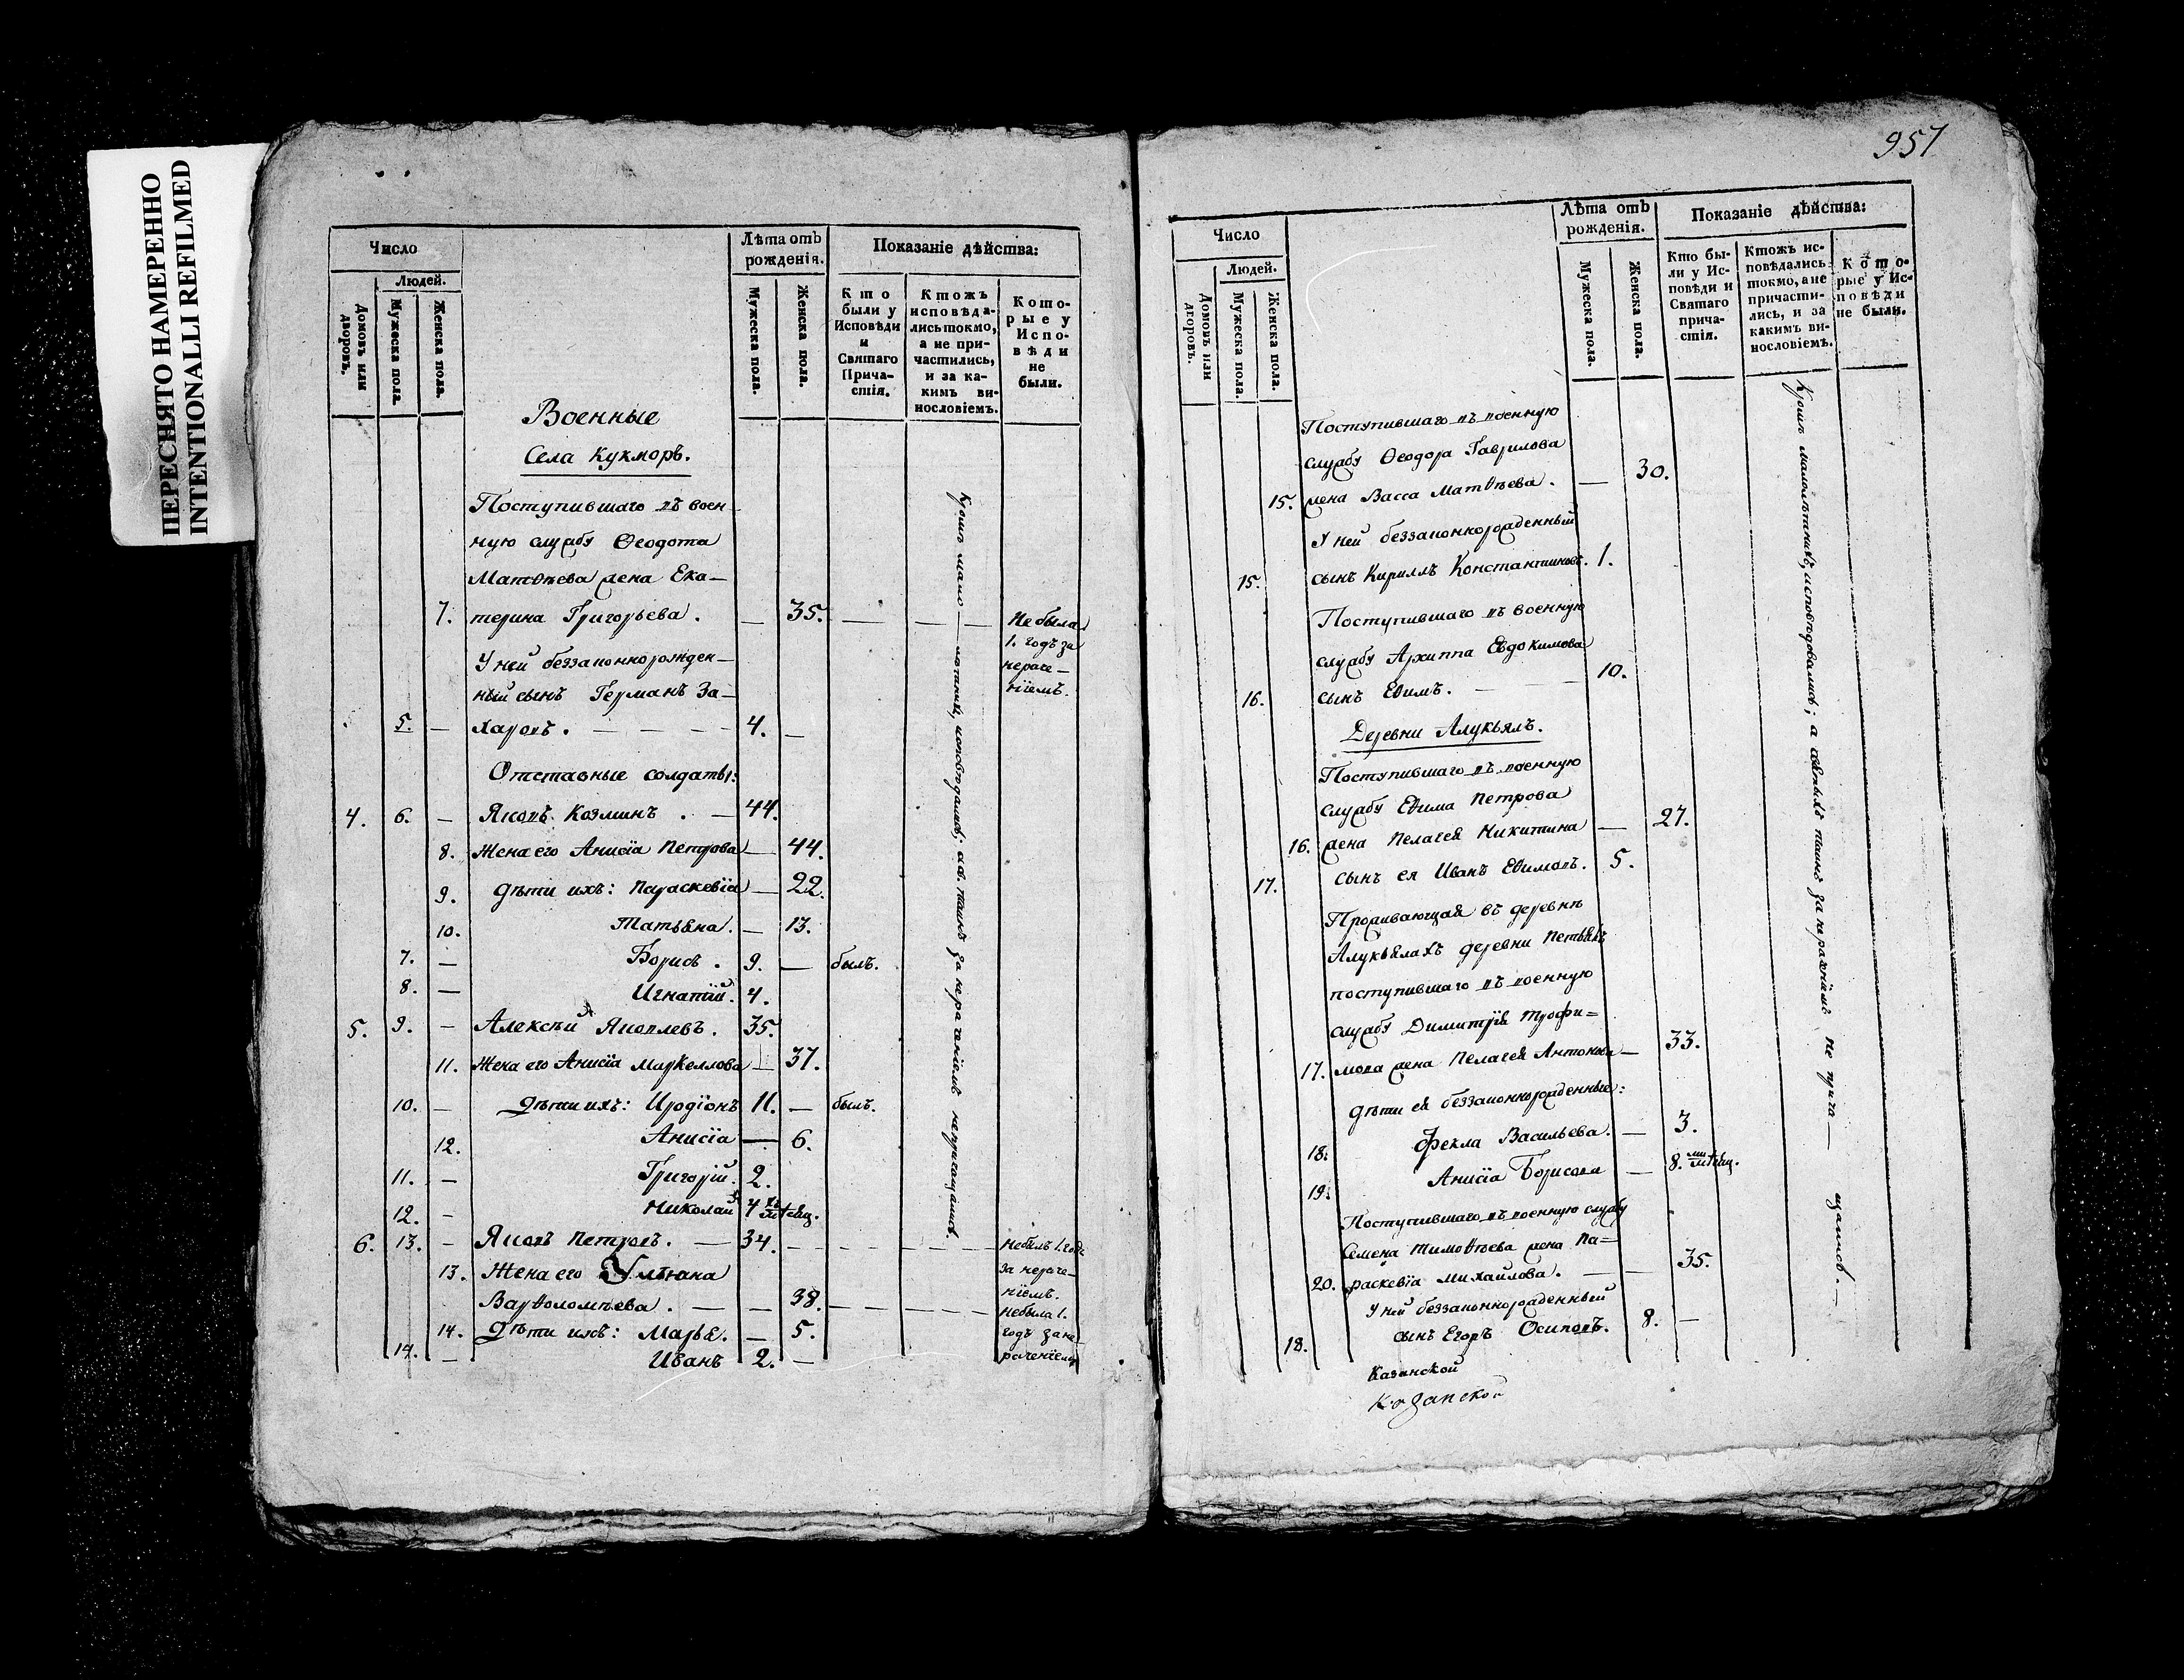 ПЕРЕСНЯТО НАМЕРЕННО
INTENTIONALLI REFILMED
Число
Людей.
Домовъ или дворовъ.
Мужеска пола.
Женска пола.
Лѣта отъ
рожденія.
Мужеска пола.
Женска пола.
Показаніе дѣйства:
Кто
были у
Исповѣди
и
Святаго
Прича-
стія.
Ктожъ
исповѣда-
лись токмо,
а не при-
частились,
и за ка-
кимъ ви-
нословіемъ.
Кото-
рые у
Испо-
вѣди
не
были.
Военные
Села Кукморъ.
Поступившаго въ воен-
ную службу Ѳеодота
Матѳѣева жена Ека-
7. терина Григорьева. — 35. — — — Не была
1. годъ за
нераче-
ніемъ.
У ней беззаконнорожден-
ный сынъ Германъ За-
5. — харовъ. — — — 4. —
Отставные солдаты:
4. 6. — Яковъ Козминъ . — 44.
8. Жена его Анисія Петрова — 44.
9. Дѣти ихъ: Параскевіа — 22.
10. Татьяна. — 13.
7. — Борисъ . 9. — былъ.
8. — Игнатій. 4.
5. 9. — Алексѣй Яковлевъ. 35.
11. Жена его Анисіа Маркеллова — 37.
10. — Дѣти ихъ: Иродіонъ 11. — былъ.
12. Анисіа — 6.
11. — Григорій. 2.
12. — Николай 4 мѣсяц.
6. 13. — Яковъ Петровъ. — 34. — — — — не былъ 1. годъ
за нераче-
ніемъ.
13. Жена его Ульяна
Варѳоломѣева. — — 38. — — — — не была 1.
годъ за не-
раченіемъ
14. Дѣти ихъ: Марья. — 5.
14. — Иванъ 2. —
957
Число
Людей.
Домовъ или дворовъ.
Мужеска пола.
Женска пола.
Лѣта отъ
рожденія.
Мужеска пола.
Женска пола.
Показаніе дѣйства:
Кто бы-
ли у Ис-
повѣди и
Святаго
прича-
стія.
Ктожъ ис-
повѣдались
токмо, а не
причасти-
лись, и за
какимъ ви-
нословіемъ.
Кото-
рые у Ис-
повѣди
не были.
Поступившаго въ военную
службу Ѳеодора Гаврилова
15. жена Васса Матѳѣева. — 30.
У ней беззаконнорожденный
15. сынъ Кириллъ Константиновъ. 1.
Поступившаго въ военную
службу Архиппа Евдокимова
16. сынъ Еѳимъ. — — 10.
Деревни Алукьялъ.
Поступившаго въ военную
службу Еѳима Петрова
16. жена Пелагея Никитина — 27.
17. сынъ ея Иванъ Еѳимовъ. 5.
Проживающая въ деревнѣ
Алукьялахъ деревни Петьялъ
поступившаго въ военную
службу Димитрія Трофи=
17. мова жена Пелагея Антонова — 33.
Дѣти ея беззаконнорожденные:
18. Фекла Васильева. — 3.
19. Анисіа Борисова — 8. мѣсяц.
Поступившаго въ военную службу
Семена Тимоѳѣева жена Па=
20. раскевіа Михайлова. — — 35.
У ней беззаконнорожденный
18. сынъ Егоръ Осиповъ. 8. —
Кромѣ малолѣтнихъ, исповѣдовались; а святыхъ таинъ за нераченіемъ не прича — щались. —
Казанской
Казанской